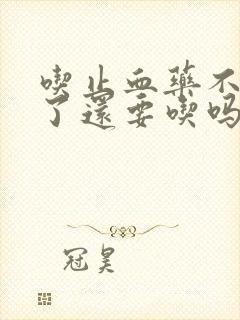 喫止血藥不
了還要喫吗
冠昊